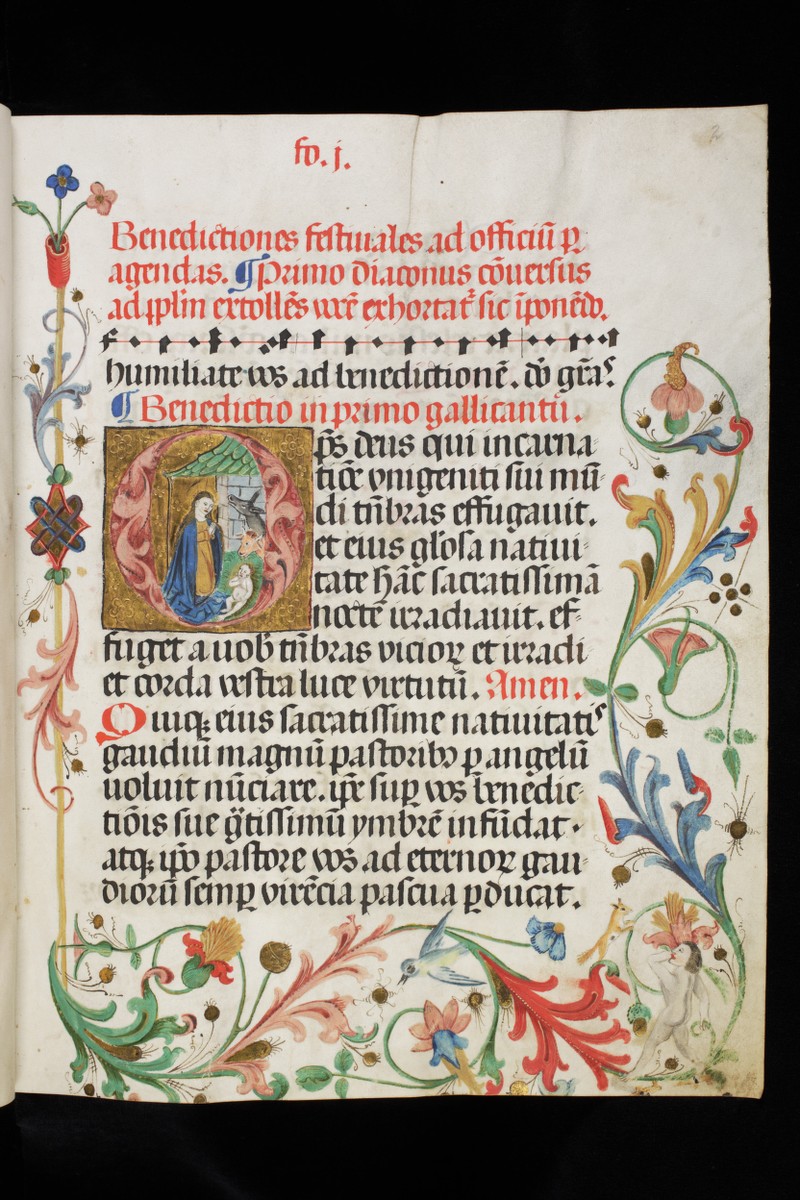 2
fo. j.
Benedictiones festiuales ad officiū ꝑ
agendas. ¶ Primo diaconus cōuersus
ad pplm̄ extollēs vocē exhortat᷑ sic īponēdo.
humiliate vos ad benedictionē. do gr̄as.
¶ Benedictio in primo gallicantū.
Op̄s deus qui incarna
tiōe vnigeniti sui mū
di tn̄bras effugauit.
et eius gl̄osa natiui
tate hāc sacratissimā
noctē irradiauit. ef
fuget a uob̄ tn̄bras vicioꝝ et irradi
et corda vestra luce virtutū. Amen.
Quiqꝫ eius sacratissime natiuitatis
gaudiū magnū pastoribꝫ ꝑ angelū
uoluit nūciare. ip̄e suꝑ vos benedic
tiōis sue gͣtissimū ymbrē infūdat.
atqꝫ ip̄o pastore vos ad eternoꝝ gau
dioꝝ semꝑ virēcia pascua ꝑducat.